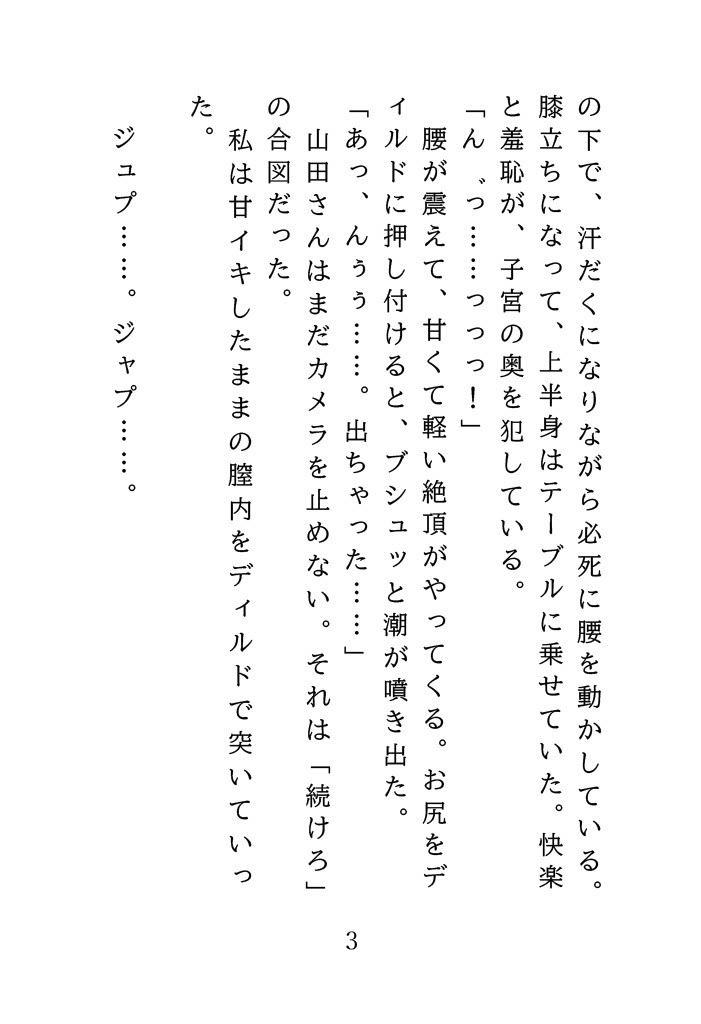 の下で、汗だくになりながら必死に腰を動かしている。
膝立ちになって、上半身はテーブルに乗せていた。快楽
と羞恥が、子宮の奥を犯している。
「ん゛っ……っっっ！」
　腰が震えて、甘くて軽い絶頂がやってくる。お尻をデ
ィルドに押し付けると、ブシュッと潮が噴き出た。
「あっ、んぅぅ……。出ちゃった……」
　山田さんはまだカメラを止めない。それは「続けろ」
の合図だった。
　私は甘イキしたままの膣内をディルドで突いていっ
た。
　ジュプ……。ジャプ……。
3